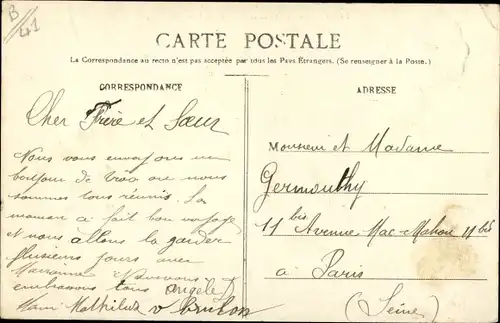 B/41
CARTE POSTALE
La Correspondance au recto n'est pas acceptée par tous les Pays Étrangers. (Se renseigner à la Poste.)
CORRESPONDANCE
Cher Frère et Sœur
Nous vous envoyons un
bonjour de où nous
sommes tous réunis. La
maman a fait bon voyage
et nous allons la garder
plusieurs jours avec
Nous vous
embrassons tous Angèle
Mathilde
ADRESSE
Monsieur et Madame
11 bis Avenue Mac-Mahon 11 bis
a Paris
(Seine)